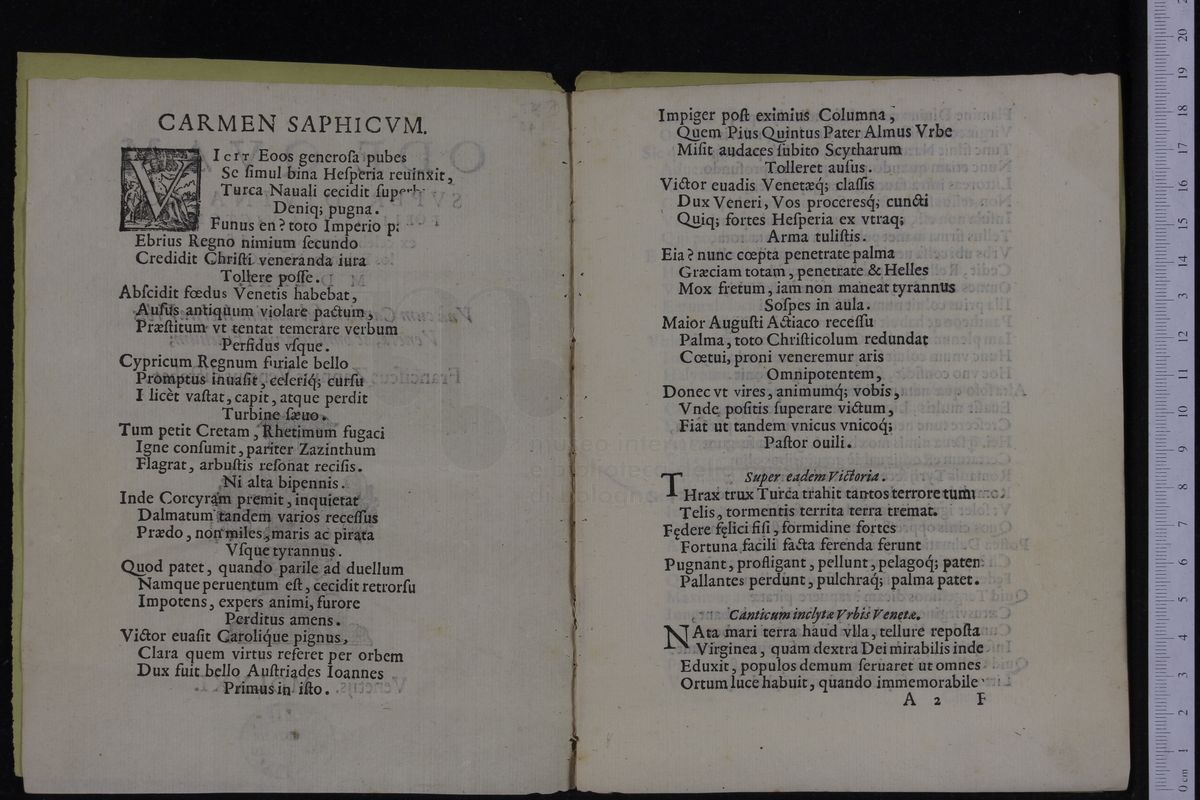 CARMEN SAPHICVM.
VIcit Eoos generoſa pubes
Se ſimul bina Heſperia reuinxit,
Turca Nauali cecidit
Deniq; pugna.
Funus en? toto Imperio
Ebrius Regno nimium ſecundo
Credidit Chriſti veneranda iura
Tollere poſſe.
Abſcidit fœdus Venetis habebat,
Auſus antiquum violare pactum,
Præſtitum vt tentat temerare verbum
Perfidus vſque.
Cypricum Regnum furiale bello
Promptus inuaſit, celeriq́; curſu
I licèt vaſtat, capit, atque perdit
Turbine ſæuo.
Tum petit Cretam, Rhetimum fugaci
Igne conſumit, pariter Zazinthum
Flagrat, arbuſtis reſonat reciſis.
Ni alta bipennis.
Inde Corcyram premit, inquietat
Dalmatum tandem varios receſſus
Prædo, non miles, maris ac pirata
Vſque tyrannus.
Quod patet, quando parile ad duellum
Namque peruentum eſt, cecidit retrorſu
Impotens, expers animi, furore
Perditus amens.
Victor euaſit Caroliq́ue pignus,
Clara quem virtus referet per orbem
Dux fuit bello Auſtriades Ioannes
Primus in iſto.
Impiger poſt eximius Columna,
Quem Pius Quintus Pater Almus Vrbe
Miſit audaces ſubito Scytharum
Tolleret auſus.
Victor euadis Venetæq́; claſſis
Dux Veneri, Vos proceresq́; cuncti
Quiq; fortes Heſperia ex vtraq;
Arma tuliſtis.
Eia? nunc cœpta penetrate palma
Græciam totam, penetrate & Helles
Mox fretum, iam non maneat tyrannus
Soſpes in aula.
Maior Auguſti Actiaco receſſu
Palma, toto Chriſticolum redundat
Cœtui, proni veneremur aris
Omnipotentem,
Donec vt vires, animumq́; vobis,
Vnde poſitis ſuperare victum,
Fiat ut tandem vnicus vnicoq́;
Paſtor ouili.
Super eadem Victoria.
THrax trux Turca trahit tantos terrore
Telis, tormentis territa terra tremat.
Fędere fęlici fiſi, formidine fortes
Fortuna facili facta ferenda ferunt
Pugnant, profligant, pellunt, pelagoq́;
Pallantes perdunt, pulchraq́; palma patet.
Canticum inclytæ Vrbis Venetæ.
NAta mari terra haud vlla, tellure repoſta
Virginea, quam dextra Dei mirabilis inde
Eduxit, populos demum ſeruaret ut omnes
Ortum luce habuit, quando immemorabile
A 2 F